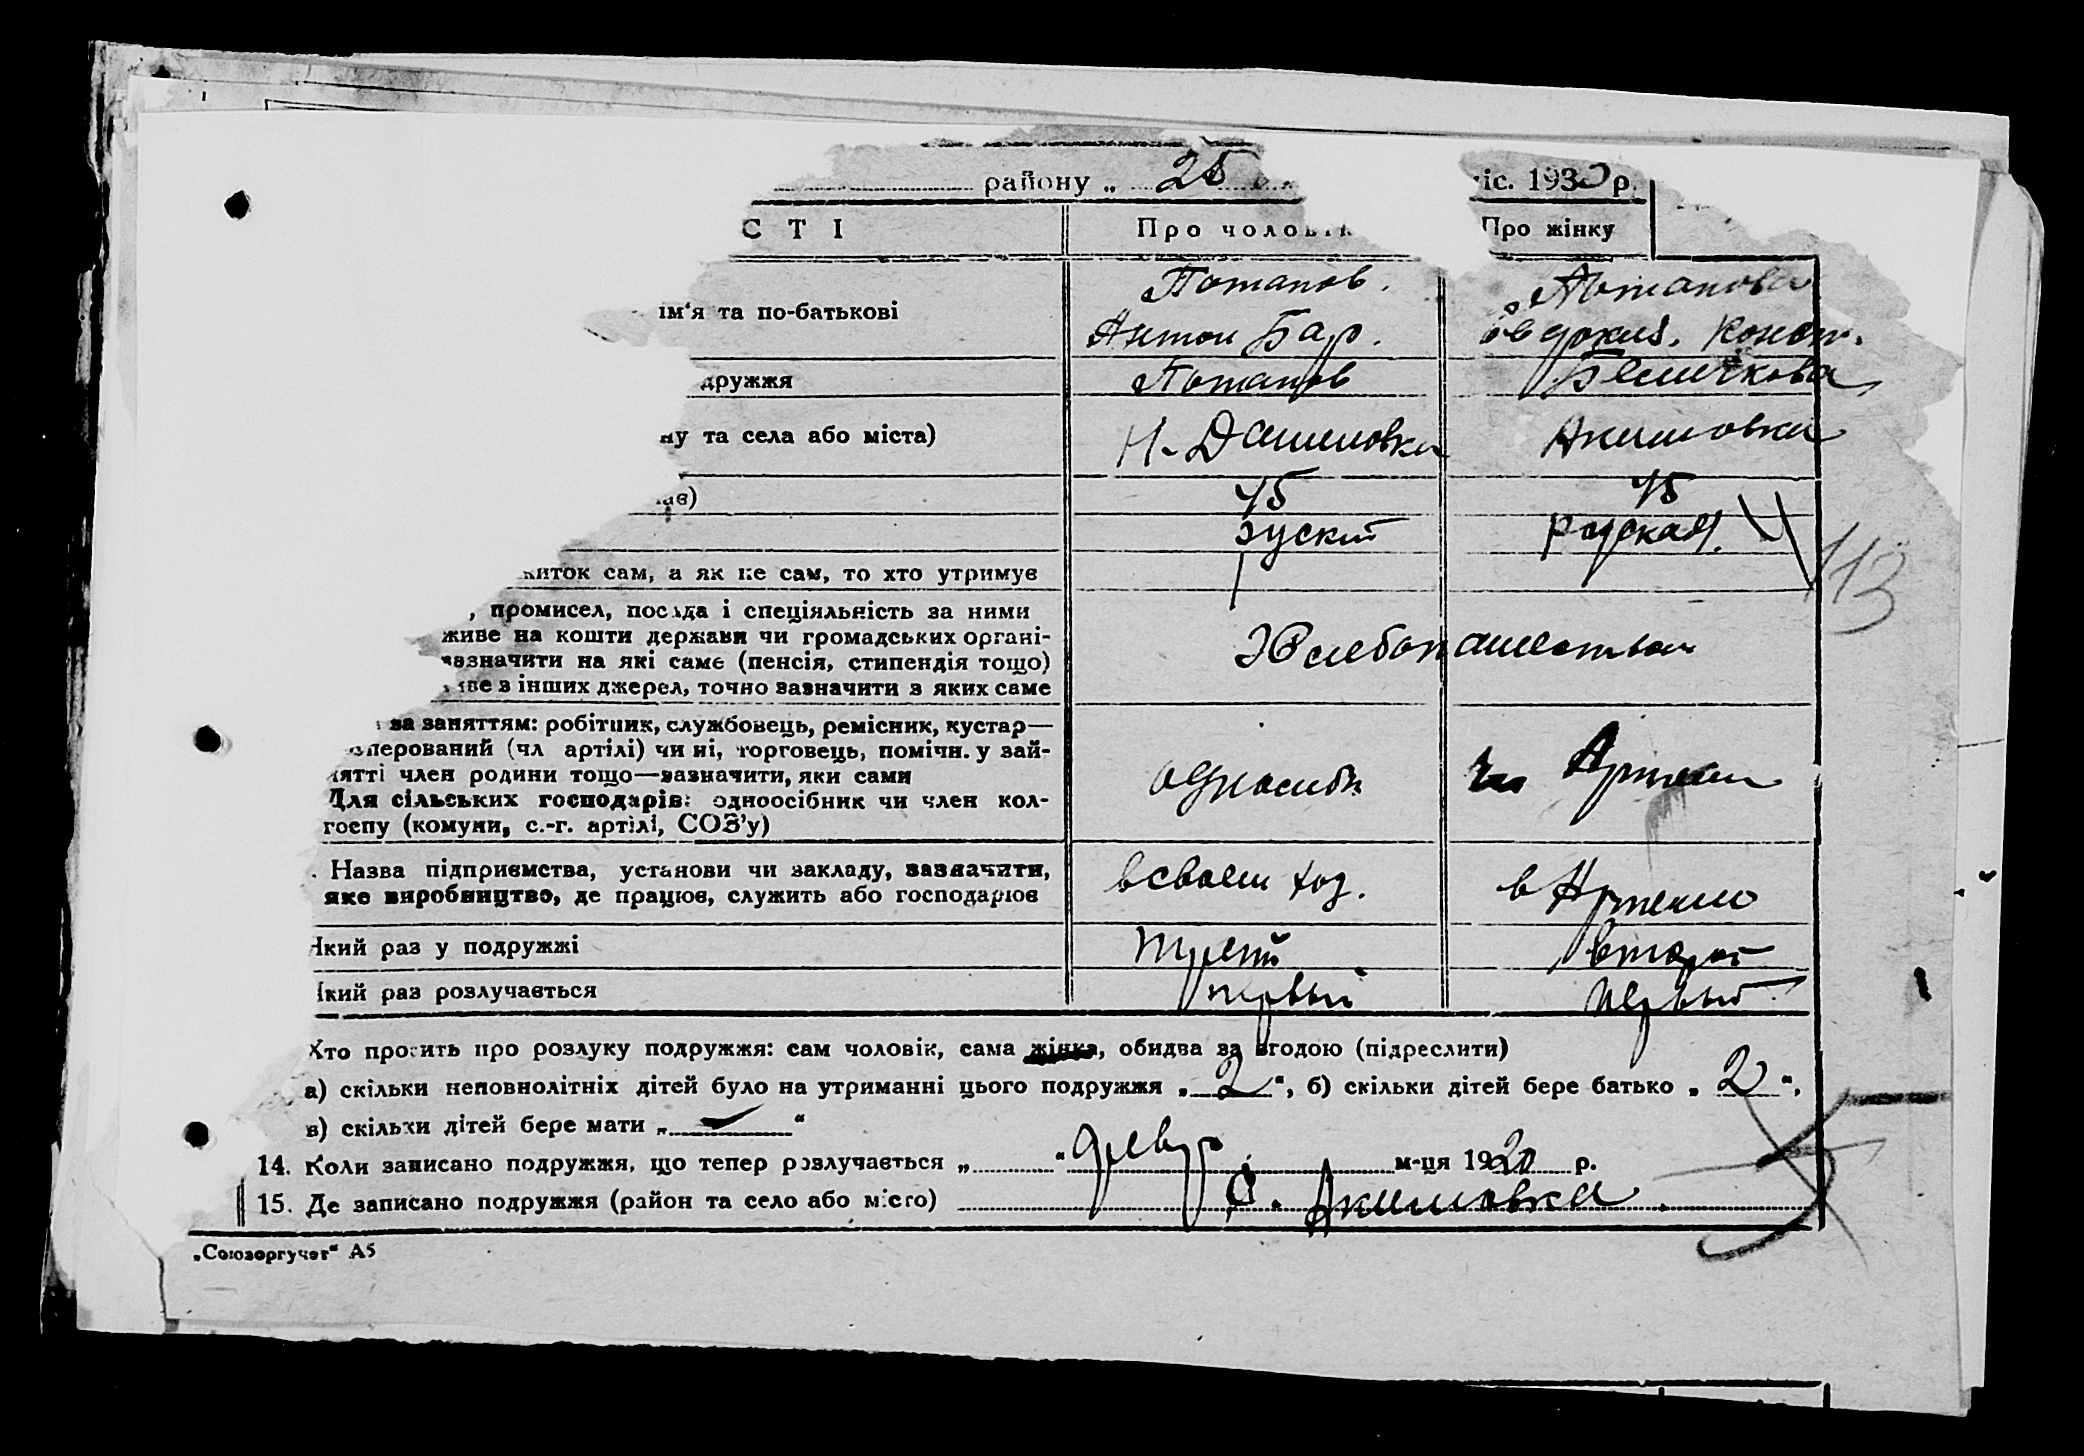 району „ 25
іс. 193 р.
СТІ Про чолов Про жінку
Потапов. Потапова
ім'я та по-батькові
Антон Вар. Конст.
Потапов
дружжя
ну та села або міста) Н. Даниловка Акимовка
45 45
руский руская 113
житок сам, а як не сам, то хто утримує
, промисел, посада і спеціяльність за ними
живе на кошти держави чи громадських органі-
зазначити на які саме (пенсія, стипендія тощо) Хлебопашеством
ве з інших джерел, точно зазначити з яких саме
за заняттям: робітник, службовець, ремісник, кустар—
оперований (чл артілі) чи ні, торговець, помічн. у зай-
нятті член родини тощо—зазначити, яки сами
Для сільських господарів: одноосібник чи член кол-
госпу (комуни, с.-г. артілі, СОЗ'у)
Назва підприємства, установи чи закладу, зазначити, в своем хоз. в Артели
яке виробництво, де працює, служить або господарює
Який раз у подружжі трети второй
Який раз розлучається первый первый
Хто просить про розлуку подружжя: сам чоловік, сама жінка, обидва за згодою (підреслити)
а) скільки неповнолітніх дітей було на утриманні цього подружжя „ 2 “, б) скільки дітей бере батько „ 2 “,
в) скільки дітей бере мати „ — “
14. Коли записано подружжя, що тепер розлучається „ “ м-ця 1920 р.
15. Де записано подружжя (район та село або місто) с. Акимовка.
„Союзоргучет“ А5